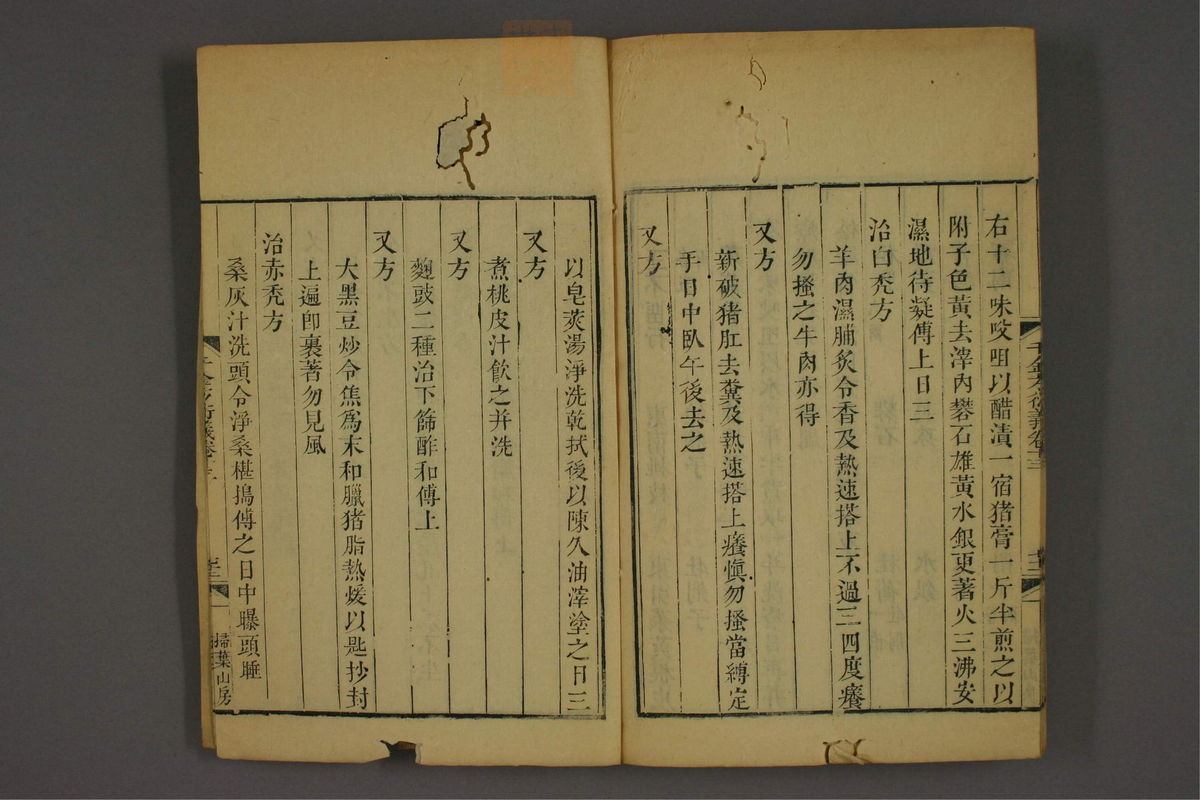 右十二味㕮咀以醋漬一宿猪膏一斤半煎之以
附子色黃去滓內礬石雄黃水銀更著火三沸安
濕地待凝傅上日三
治白禿方
羊肉濕脯炙令香及熱速搭上不過三四度癢
勿搔之牛肉亦得
又方
新破猪肚去糞及熱速搭上癢愼勿搔當縛定
手日中臥午後去之
又方
以皂莢湯淨洗乾拭後以陳久油滓塗之日三
又方
煮桃皮汁飮之并洗
又方
麴豉二種治下篩酢和傅上
又方
大黑豆炒令焦爲末和臘猪脂熱煖以匙抄封
上遍卽裹著勿見風
治赤禿方
桑灰汁洗頭令淨桑椹搗傅之日中曝頭睡
掃葉山房